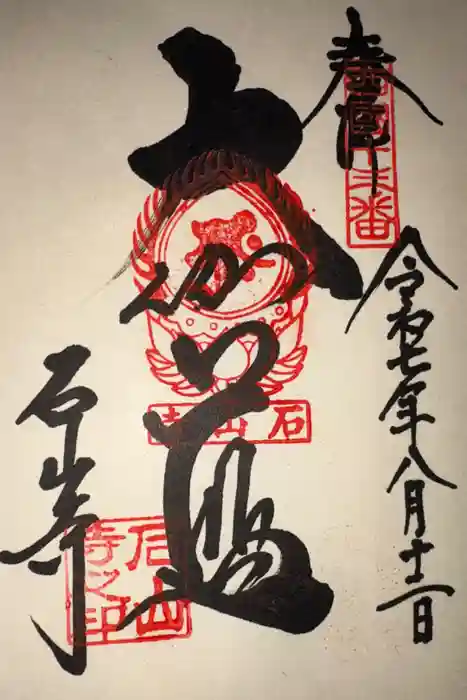 奉拝
西国十三番
令和七年八月十二日
大伽藍
石山寺
石山寺
石山寺之印